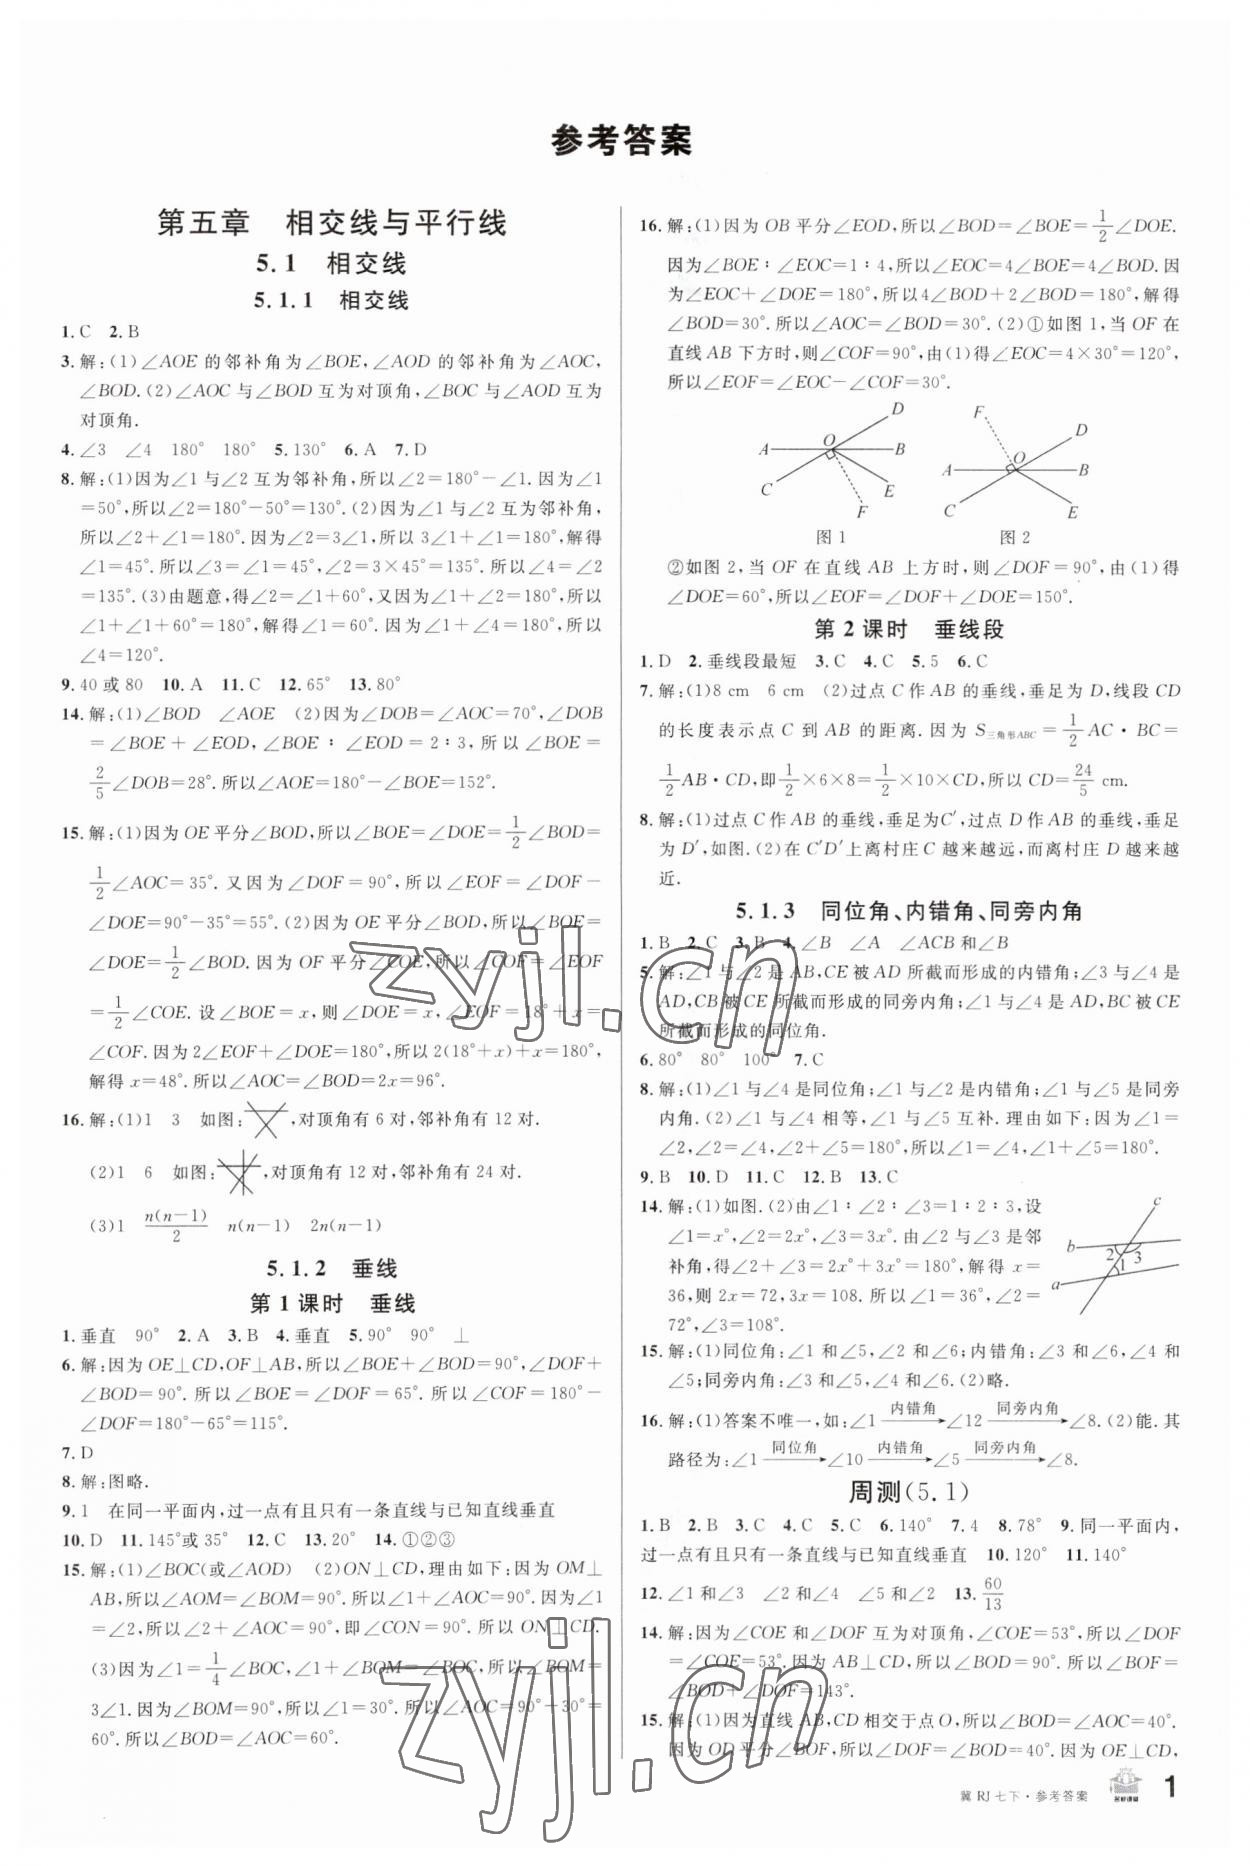 参考答案
第五章 相交线与平行线
5.1 相交线
5.1.1 相交线
1.C 2.B
3.解:(1)∠AOE的邻补角为∠BOE,∠AOD的邻补角为∠AOC,
∠BOD.(2)∠AOC与∠BOD互为对顶角,∠BOC与∠AOD互为
对顶角.
4.∠3 ∠4 180° 180° 5.130° 6.A 7.D
8.解:(1)因为∠1与∠2互为邻补角,所以∠2=180°-∠1.因为∠1
=50°,所以∠2=180°-50°=130°.(2)因为∠1与∠2互为邻补角,
所以∠2+∠1=180°.因为∠2=3∠1,所以3∠1+∠1=180°,解得
∠1=45°.所以∠3=∠1=45°,∠2=3×45°=135°.所以∠4=∠2
=135°.(3)由题意,得∠2=∠1+60°,又因为∠1+∠2=180°,所以
∠1+∠1+60°=180°,解得∠1=60°.因为∠1+∠4=180°,所以
∠4=120°.
9.40或80 10.A 11.C 12.65° 13.80°
14.解:(1)∠BOD ∠AOE (2)因为∠DOB=∠AOC=70°,∠DOB
=∠BOE+∠EOD,∠BOE∶∠EOD=2∶3,所以∠BOE=
2/5∠DOB=28°.所以∠AOE=180°-∠BOE=152°.
15.解:(1)因为OE平分∠BOD,所以∠BOE=∠DOE=1/2∠BOD=
1/2∠AOC=35°.又因为∠DOF=90°,所以∠EOF=∠DOF-
∠DOE=90°-35°=55°.(2)因为OE平分∠BOD,所以∠BOE=
∠DOE=1/2∠BOD.因为OF平分∠COE,所以∠COF=∠EOF
=1/2∠COE.设∠BOE=x,则∠DOE=x,∠EOF=18°+x=
∠COF.因为2∠EOF+∠DOE=180°,所以2(18°+x)+x=180°,
解得x=48°.所以∠AOC=∠BOD=2x=96°.
16.解:(1)1 3 如图: ,对顶角有6对,邻补角有12对.
(2)1 6 如图: ,对顶角有12对,邻补角有24对.
(3)1 n(n-1)/2 n(n-1) 2n(n-1)
5.1.2 垂线
第1课时 垂线
1.垂直 90° 2.A 3.B 4.垂直 5.90° 90° ⊥
6.解:因为OE⊥CD,OF⊥AB,所以∠BOE+∠BOD=90°,∠DOF+
∠BOD=90°.所以∠BOE=∠DOF=65°.所以∠COF=180°-
∠DOF=180°-65°=115°.
7.D
8.解:图略.
9.1 在同一平面内,过一点有且只有一条直线与已知直线垂直
10.D 11.145°或35° 12.C 13.20° 14.①②③
15.解:(1)∠BOC(或∠AOD) (2)ON⊥CD,理由如下:因为OM⊥
AB,所以∠AOM=∠BOM=90°.所以∠1+∠AOC=90°.因为∠1
=∠2,所以∠2+∠AOC=90°,即∠CON=90°.所以ON⊥CD.
(3)因为∠1=1/4∠BOC,∠1+∠BOM=∠BOC,所以∠BOM=
3∠1.因为∠BOM=90°,所以∠1=30°.所以∠AOC=90°-30°=
60°.所以∠BOD=∠AOC=60°.
16.解:(1)因为OB平分∠EOD,所以∠BOD=∠BOE=1/2∠DOE.
因为∠BOE∶∠EOC=1∶4,所以∠EOC=4∠BOE=4∠BOD.因
为∠EOC+∠DOE=180°,所以4∠BOD+2∠BOD=180°,解得
∠BOD=30°.所以∠AOC=∠BOD=30°.(2)①如图1,当OF在
直线AB下方时,则∠COF=90°,由(1)得∠EOC=4×30°=120°,
所以∠EOF=∠EOC-∠COF=30°.
D
A O B
C E
F
图1
F
D
A O B
C E
图2
②如图2,当OF在直线AB上方时,则∠DOF=90°,由(1)得
∠DOE=60°,所以∠EOF=∠DOF+∠DOE=150°.
第2课时 垂线段
1.D 2.垂线段最短 3.C 4.C 5.5 6.C
7.解:(1)8 cm 6 cm (2)过点C作AB的垂线,垂足为D,线段CD
的长度表示点C到AB的距离.因为S三角形ABC=1/2AC·BC=
1/2AB·CD,即1/2×6×8=1/2×10×CD,所以CD=24/5 cm.
8.解:(1)过点C作AB的垂线,垂足为C′,过点D作AB的垂线,垂足
为D′,如图.(2)在C′D′上离村庄C越来越远,而离村庄D越来越
近.
5.1.3 同位角、内错角、同旁内角
1.B 2.C 3.B 4.∠B ∠A ∠ACB和∠B
5.解:∠1与∠2是AB,CE被AD所截而形成的内错角;∠3与∠4是
AD,CB被CE所截而形成的同旁内角;∠1与∠4是AD,BC被CE
所截而形成的同位角.
6.80° 80° 100° 7.C
8.解:(1)∠1与∠4是同位角;∠1与∠2是内错角;∠1与∠5是同旁
内角.(2)∠1与∠4相等,∠1与∠5互补.理由如下:因为∠1=
∠2,∠2=∠4,∠2+∠5=180°,所以∠1=∠4,∠1+∠5=180°.
9.B 10.D 11.C 12.B 13.C
14.解:(1)如图.(2)由∠1∶∠2∶∠3=1∶2∶3,设
∠1=x°,∠2=2x°,∠3=3x°.由∠2与∠3是邻
补角,得∠2+∠3=2x°+3x°=180°,解得x=
36,则2x=72,3x=108.所以∠1=36°,∠2=
72°,∠3=108°.
c
b
2 3
1
a
15.解:(1)同位角:∠1和∠5,∠2和∠6;内错角:∠3和∠6,∠4和
∠5;同旁内角:∠3和∠5,∠4和∠6.(2)略.
16.解:(1)答案不唯一,如:∠1 内错角→ ∠12 同旁内角→ ∠8.(2)能.其
路径为:∠1 同位角→ ∠10 内错角→ ∠5 同旁内角→ ∠8.
周测(5.1)
1.B 2.B 3.C 4.C 5.C 6.140° 7.4 8.78° 9.同一平面内,
过一点有且只有一条直线与已知直线垂直 10.120° 11.140°
12.∠1和∠3 ∠2和∠4 ∠5和∠2 13.60/13
14.解:因为∠COE和∠DOF互为对顶角,∠COE=53°,所以∠DOF
=∠COE=53°.因为AB⊥CD,所以∠BOD=90°.所以∠BOF=
∠BOD+∠DOF=143°.
15.解:(1)因为直线AB,CD相交于点O,所以∠BOD=∠AOC=40°.
因为OD平分∠BOF,所以∠DOF=∠BOD=40°.因为OE⊥CD,
zyjl.cn
zyjl.cn
冀 RJ 七下·参考答案
名校课堂
1